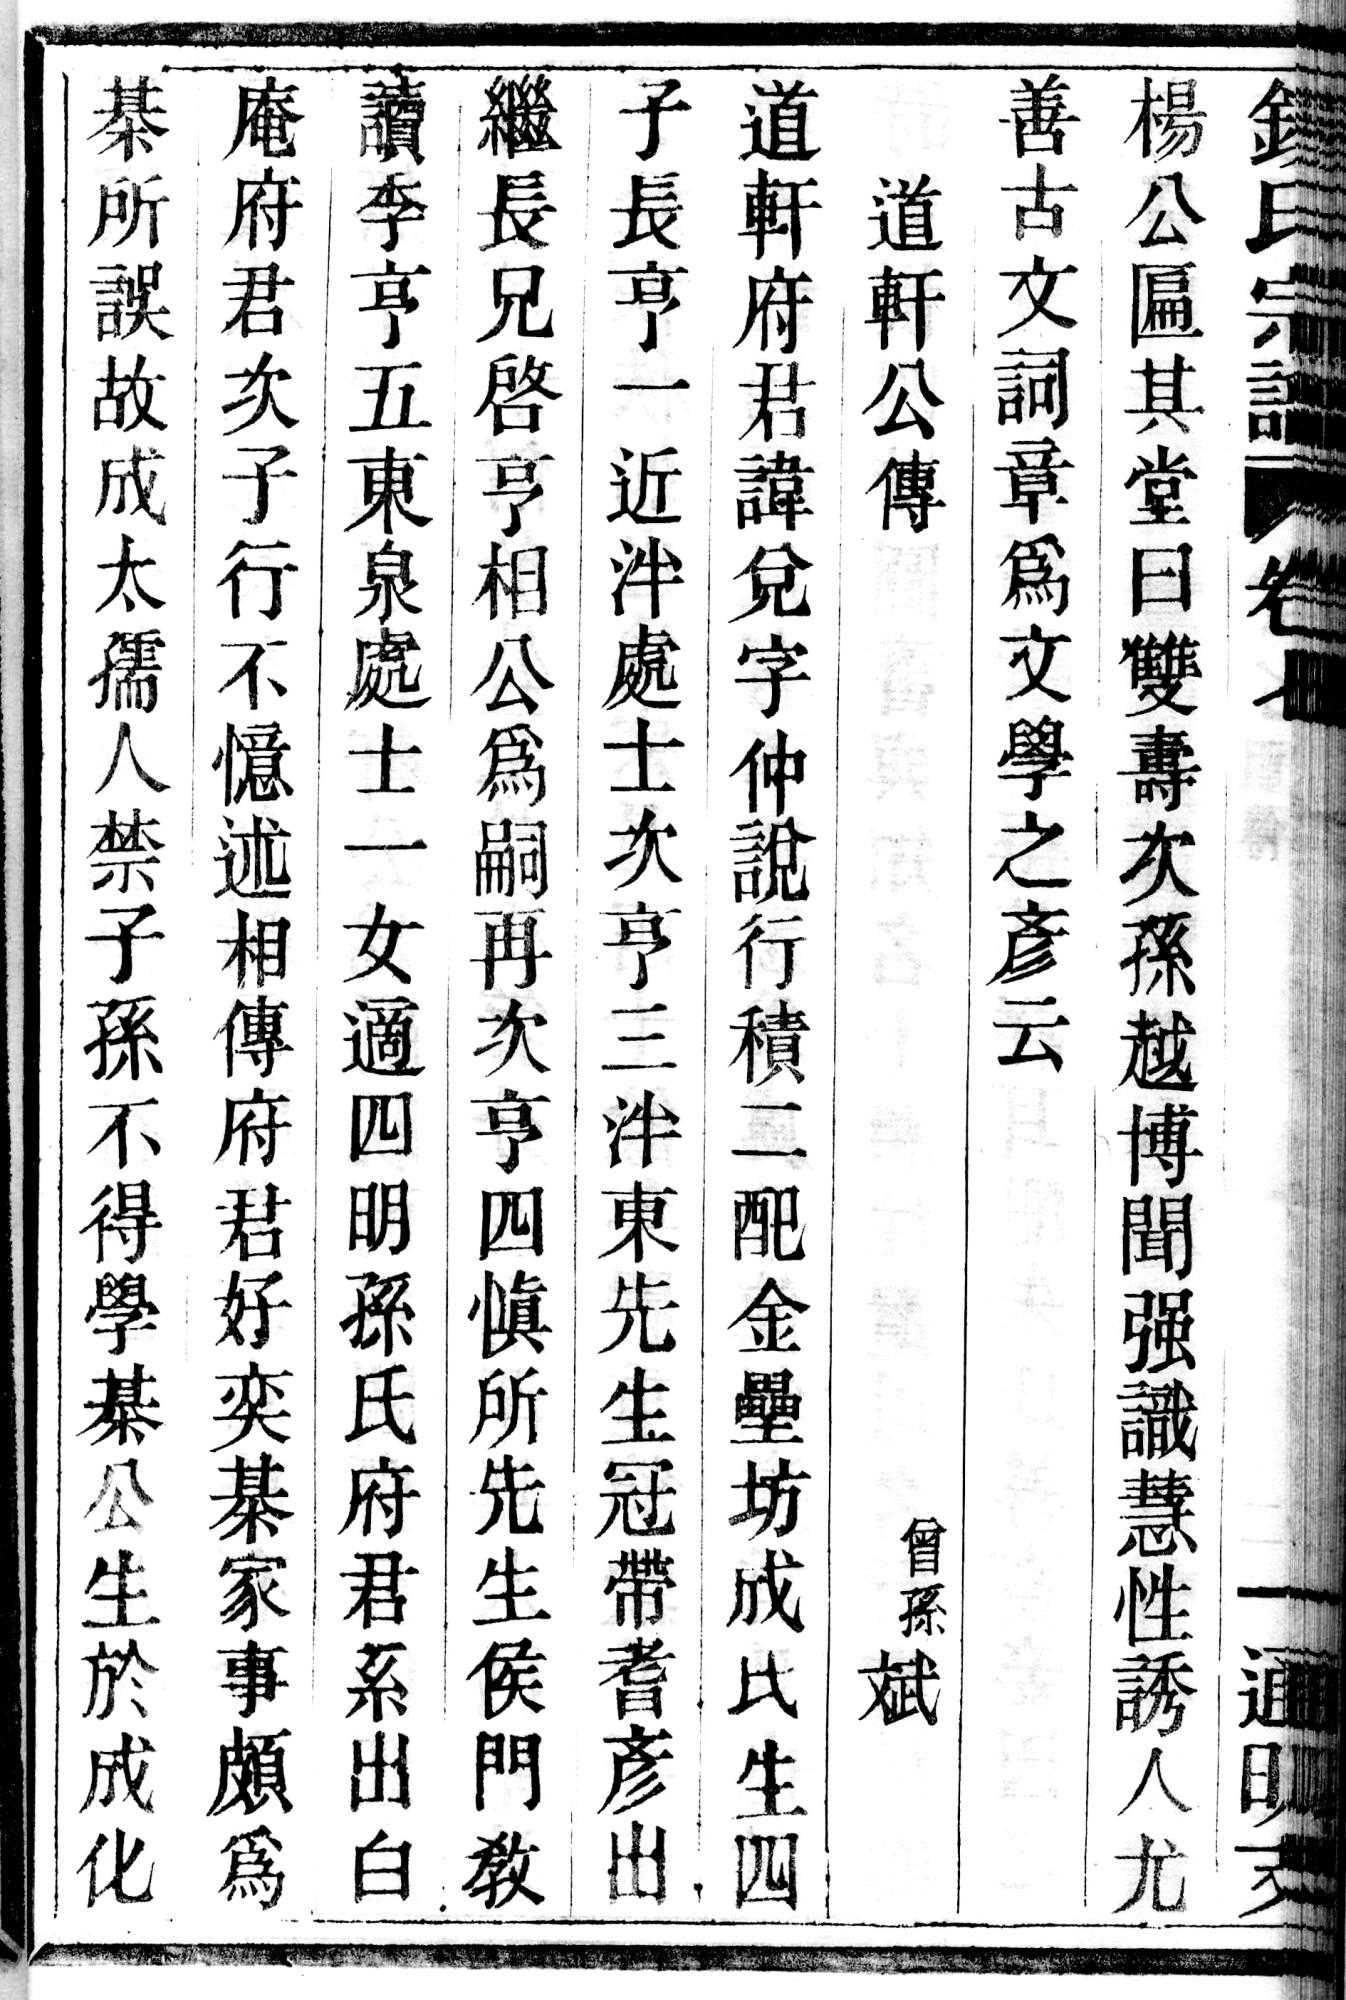 氏宗譜 卷 通明
楊公匾其堂曰雙壽次孫越博聞强識慧性誘人尤
善古文詞章爲文學之彥云
道軒公傳 曾孫斌
道軒府君諱兌字仲說行積二配金罍坊成氏生四
子長亨一近泮處士次亨三泮東先生冠帶耆彥出
繼長兄啓亨相公爲嗣再次亨四慎所先生侯門教
讀李亨五東泉處士一女適四明孫氏府君系出白
庵府君次子行不憶述相傳府君好奕棊家事頗爲
棊所誤故成太孺人禁子孫不得學棊公生於成化